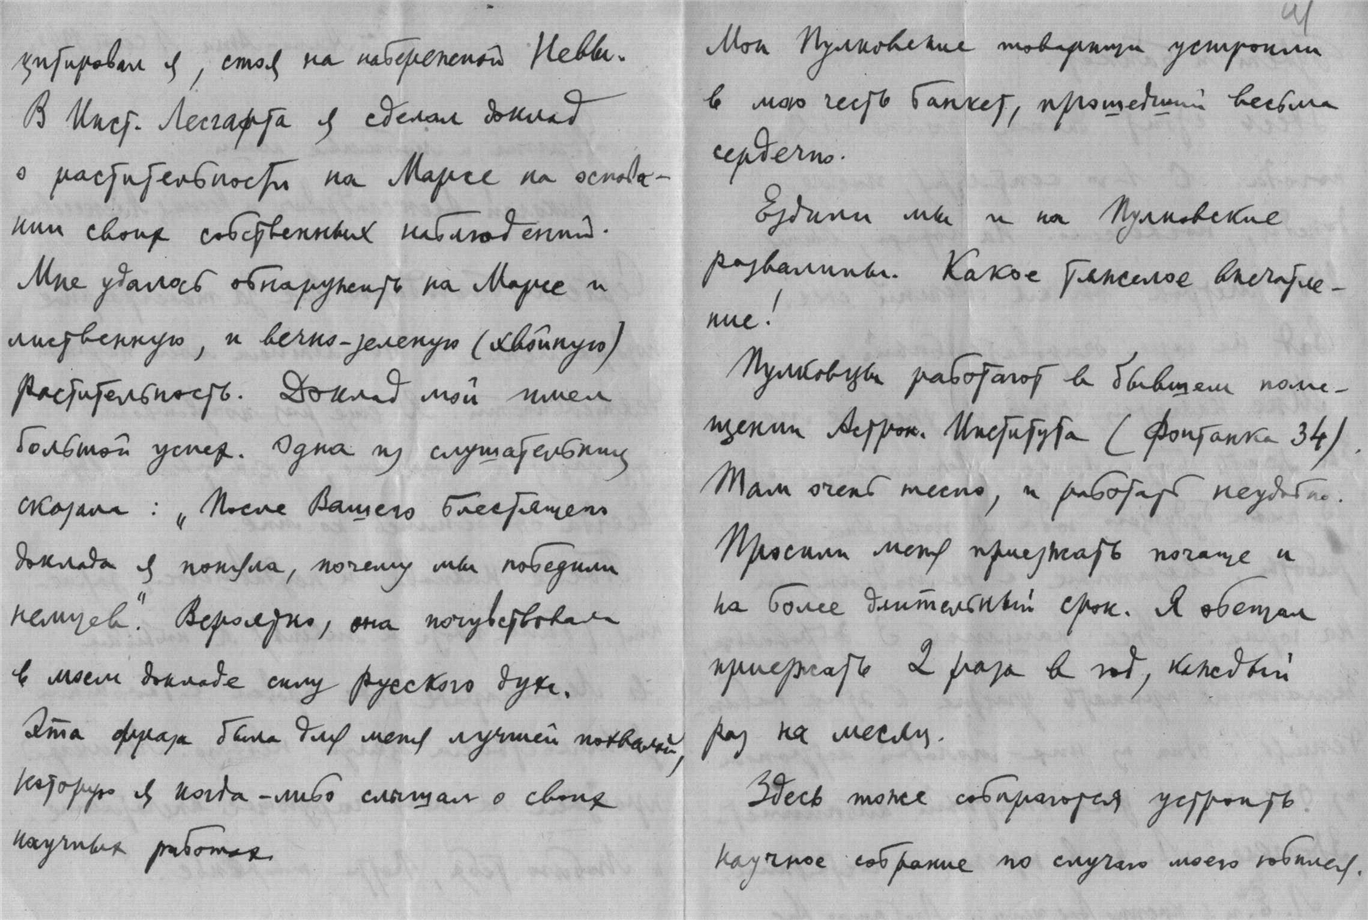 цитировал я, стоя на набережной Невы.
В Инст. Лесгафта я сделал доклад
о растительности на Марсе на основа-
нии своих собственных наблюдений.
Мне удалось обнаружить на Марсе и
лиственную, и вечно-зеленую (хвойную)
растительность. Доклад мой имел
большой успех. Одна из слушательниц
сказала: „После Вашего блестящего
доклада я поняла, почему мы победили
немцев“. Вероятно, она почувствовала
в моем докладе силу русского духа.
Эта фраза была для меня лучшей похвалой,
которую я когда-либо слышал о своих
научных работах.
Мои Пулковские товарищи устроили
в мою честь банкет, прошедший весьма
сердечно.
Ездили мы и на Пулковские
развалины. Какое тяжелое впечатле-
ние!
Пулковцы работают в бывшем поме-
щении Астрон. Института (Фонтанка 34).
Там очень тесно, и работать неудобно.
Просили меня приезжать почаще и
на более длительный срок. Я обещал
приезжать 2 раза в год, каждый
раз на месяц.
Здесь тоже собираются устроить
научное собрание по случаю моего юбилея.